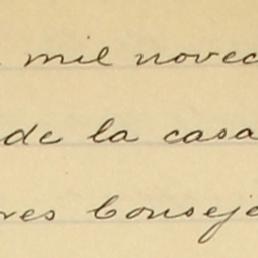 mil novec
de la casa
res Conseje